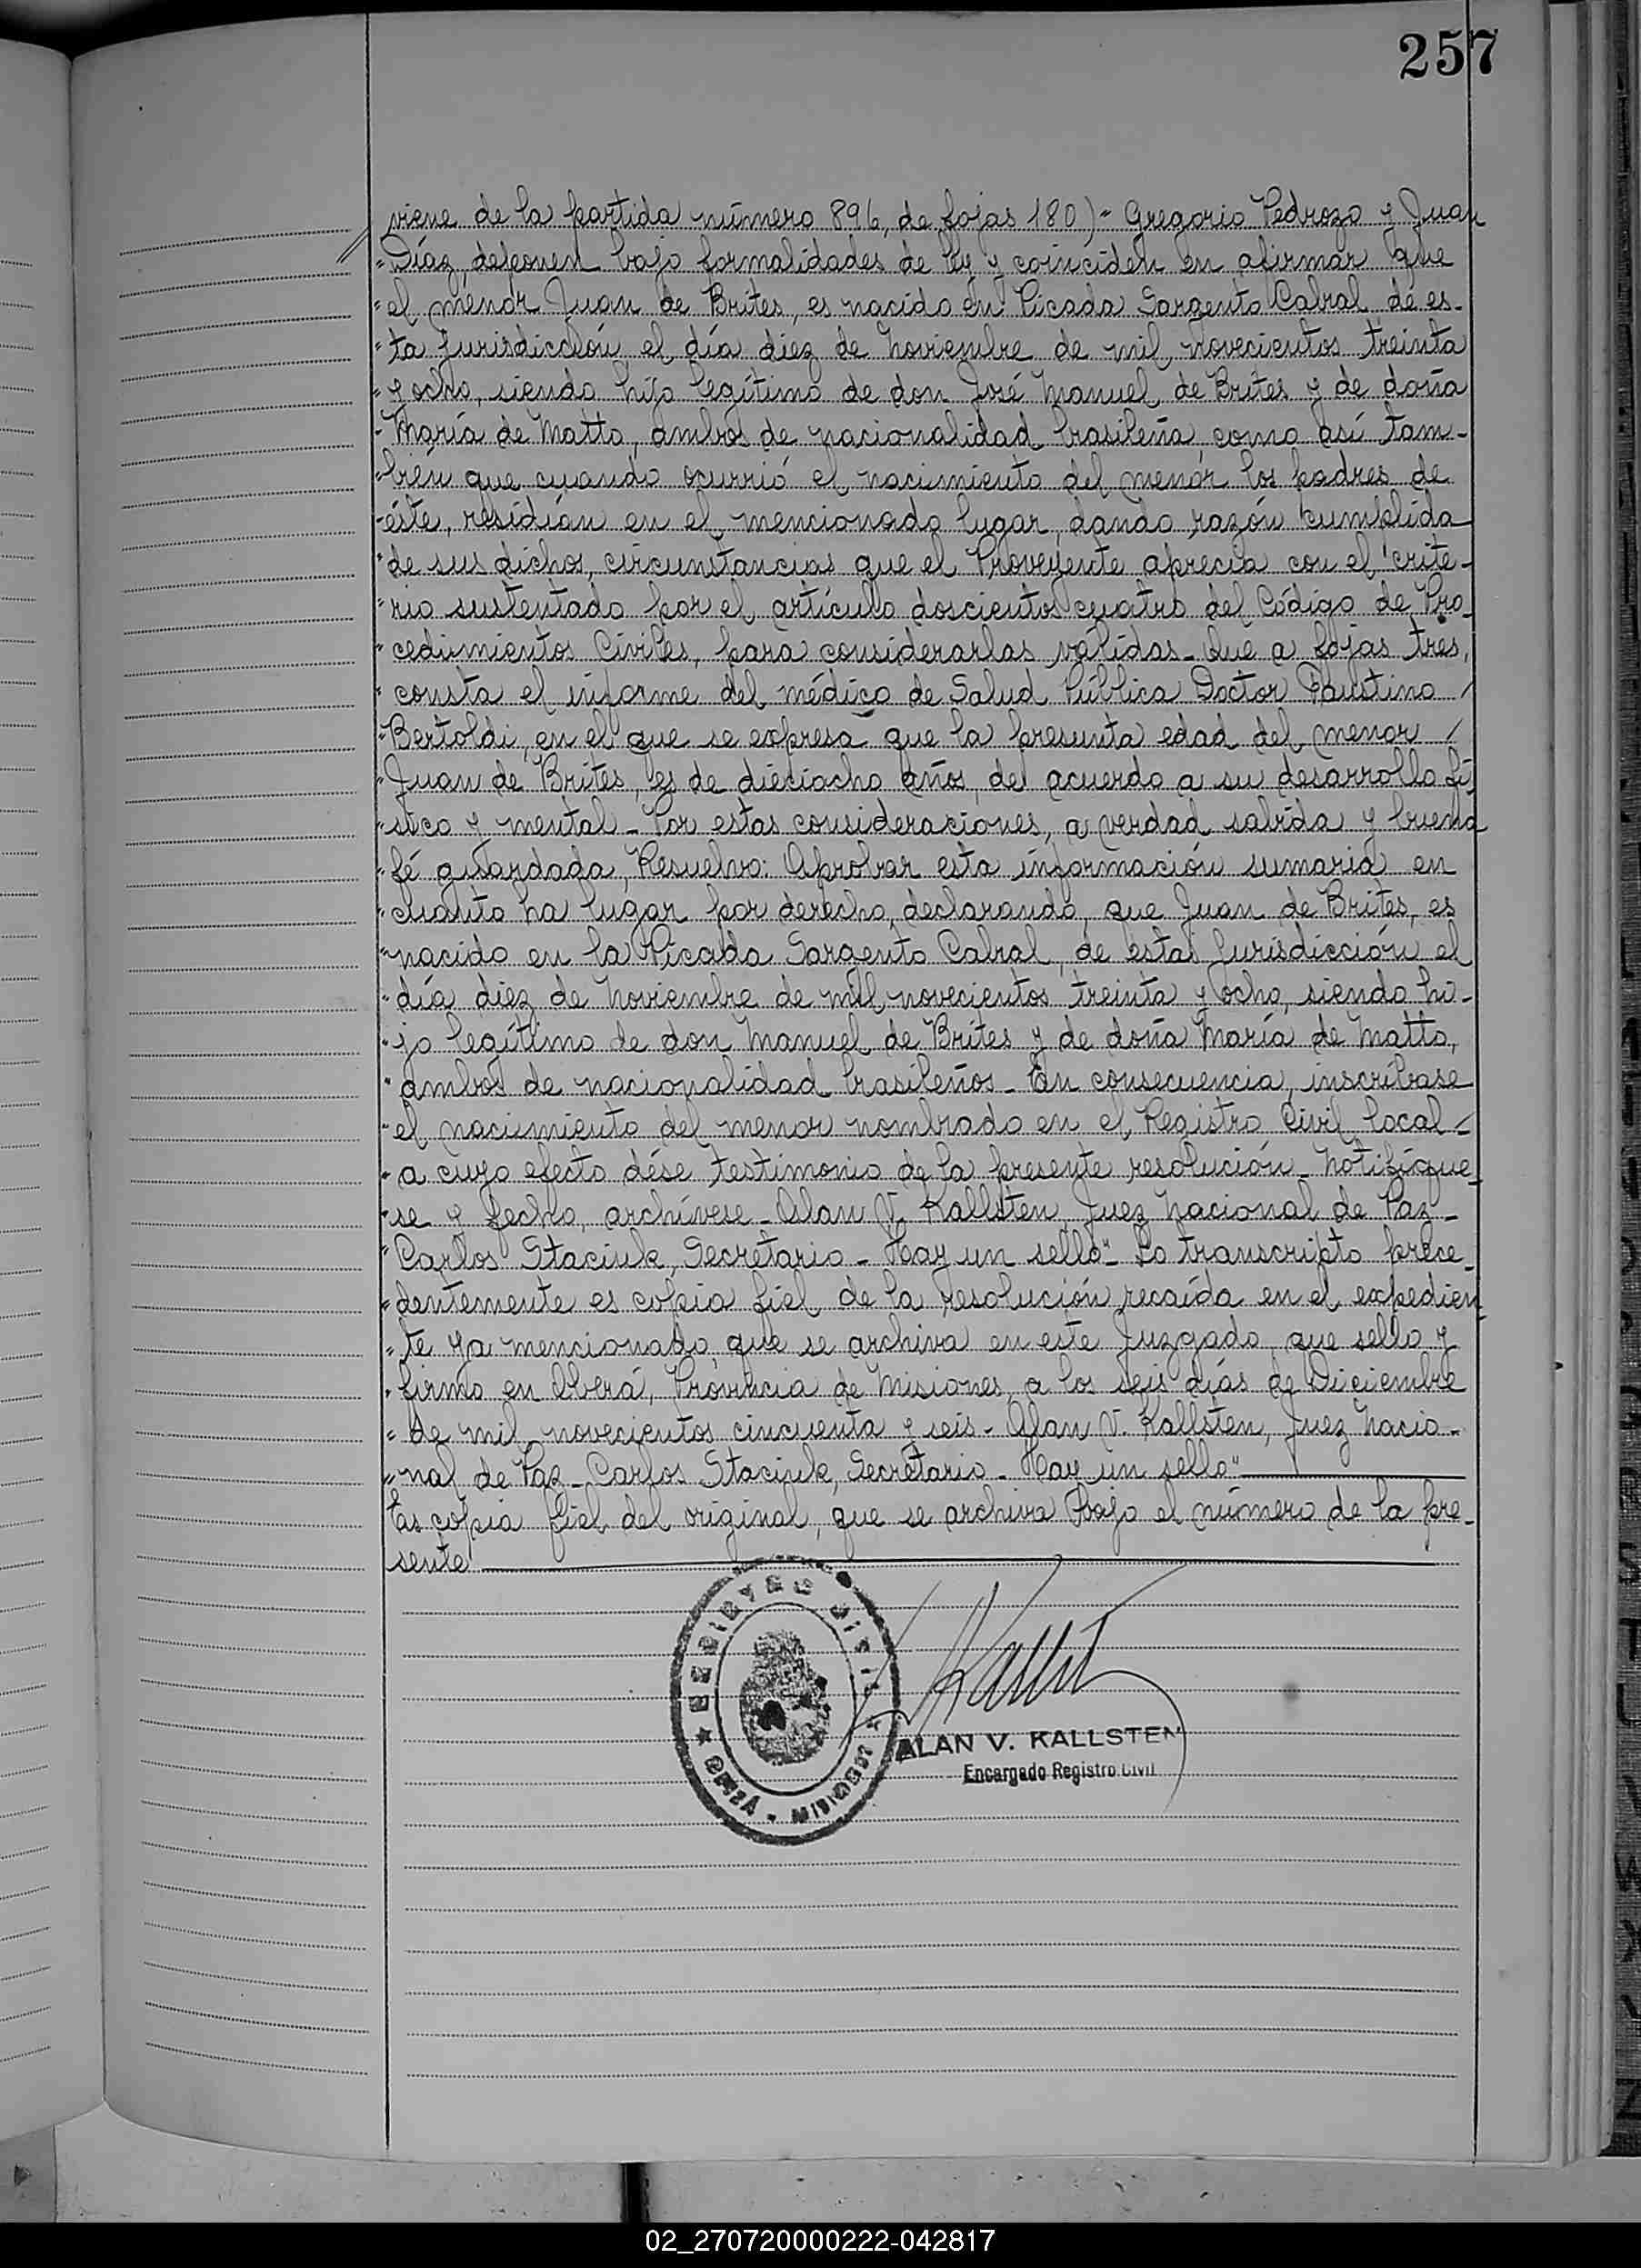 257
viene de la partida número 896, de fojas 180)-" Gregorio Pedrozo y Juan
"Díaz, deponen bajo formalidades de ley y coinciden en afirmar que
"el menor Juan de Brites, es nacido en Picada Sargento Cabral de es-
"ta jurisdicción, el día diez de Noviembre de mil novecientos treinta
"y ocho, siendo hijo legítimo de don José Manuel de Brites y de doña
"María de Matto, ambos de nacionalidad brasileña, como así tam-
"bién que cuando ocurrió el nacimiento del menor los padres de
"éste, residían en el mencionado lugar, dando razón cumplida
"de sus dichos, circunstancias que el Proveyente aprecia con el crite-
"rio sustentado por el artículo doscientos cuatro del Código de Pro-
"cedimientos Civiles, para considerarlas válidas- Que a fojas tres,
"consta el informe del médico de Salud Pública Doctor Faustino /
"Bertoldi, en el que se expresa que la presunta edad del menor /
"Juan de Brites, es de dieciocho años, de acuerdo a su desarrollo fí-
"sico y mental- Por estas consideraciones, a verdad sabida y buena
"fé guardada, Resuelvo: Aprobar esta información sumaria en
"cuanto ha lugar por derecho, declarando, que Juan de Brites, es
"nacido en la Picada Sargento Cabral, de esta Jurisdicción el
"día diez de Noviembre de mil novecientos treinta y ocho, siendo hi-
"jo legítimo de don Manuel de Brites y de doña María de Matto,
"ambos de nacionalidad brasileños- En consecuencia, inscríbase
"el nacimiento del menor nombrado en el Registro Civil local-
"a cuyo efecto dése testimonio de la presente resolución- Notifíque-
"se y fecho, archívese- Alan V. Kallsten, Juez Nacional de Paz-
"Carlos Staciuk, Secretario- Hay un sello"- Lo transcripto prece-
"dentemente es copia fiel de la resolución recaída en el expedien-
"te ya mencionado, que se archiva en este Juzgado, que sello y
"firmo en Oberá, Provincia de Misiones, a los seis días de Diciembre
"de mil novecientos cincuenta y seis- Alan V. Kallsten, Juez Nacio-
"nal de Paz- Carlos Staciuk, Secretario- Hay un sello"
Es copia fiel del original, que se archiva bajo el número de la pre-
sente
ALAN V. KALLSTEN
Encargado Registro Civil
02_270720000222-042817